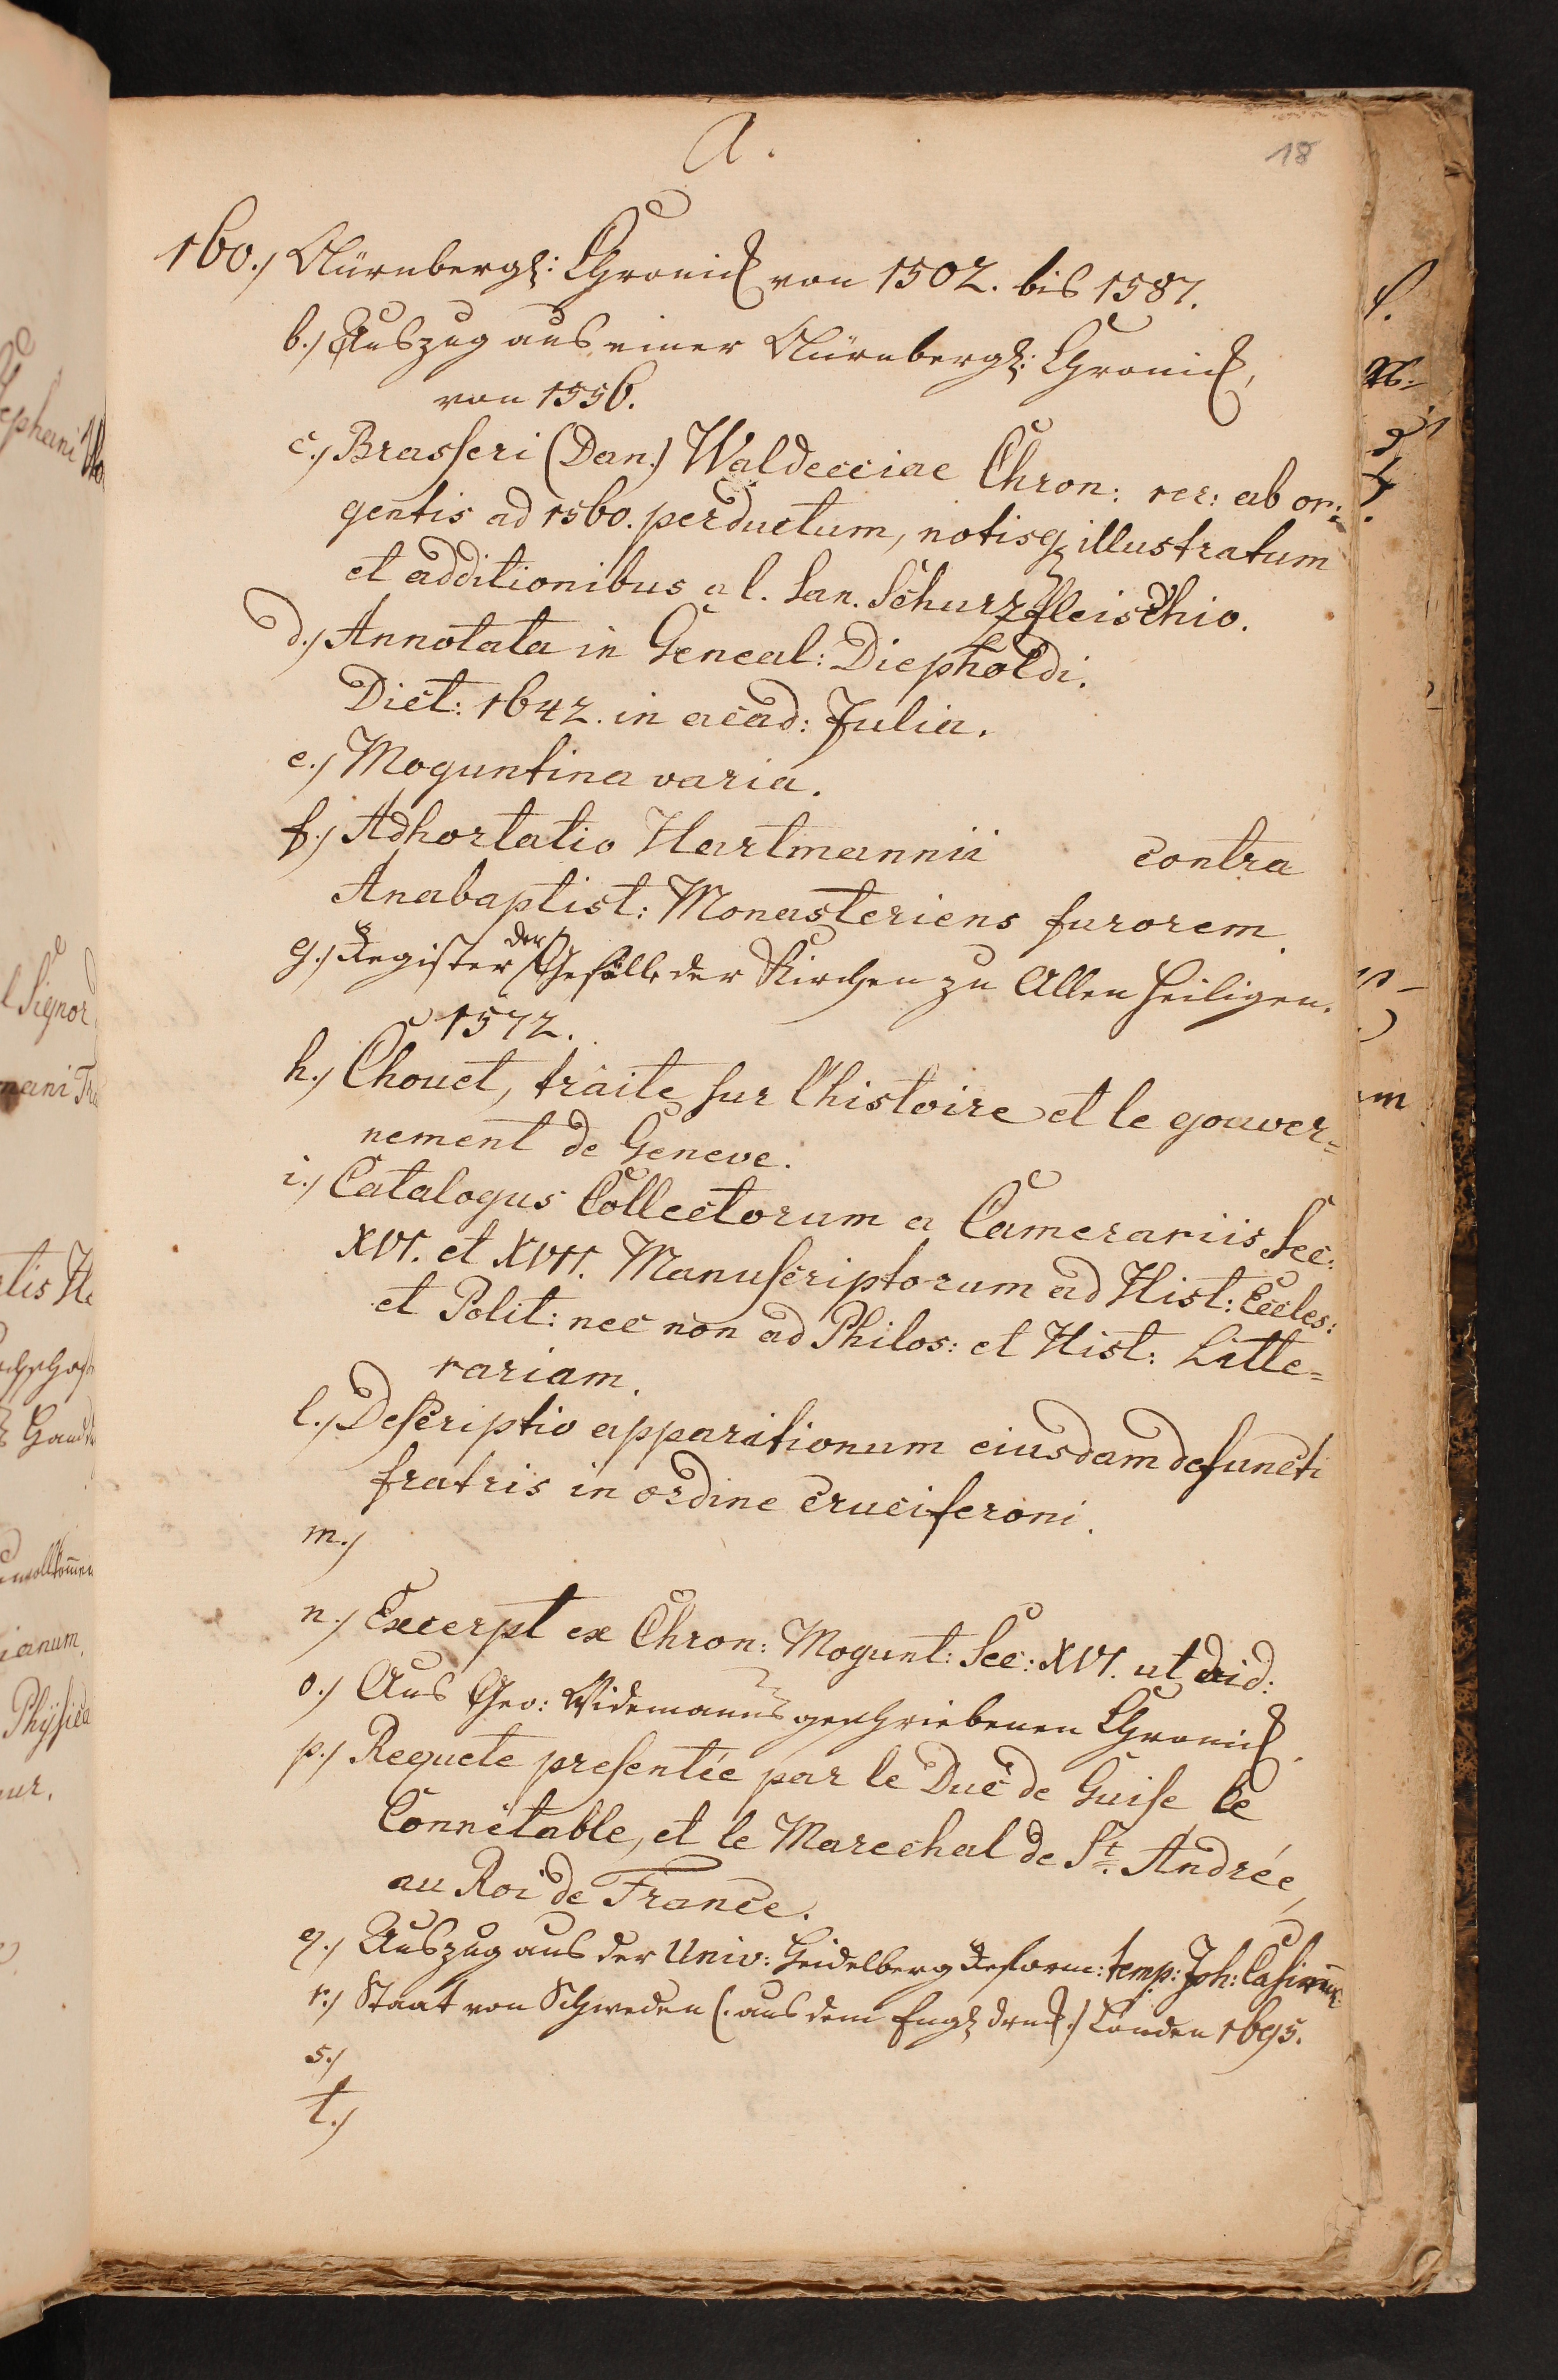 A.
18
160.) Nürnbergs: Chronick von 1502. bis 1587.
b.) Auszug aus einer Nürnbergs: Chronick,
von 1556.
c.) Brasseri (Dan.) Waldecciae Chron: rer: ab or:
gentis ad 1560. perductum, notisq illustratum
et additionibus a l. San. Schurzfleischio.
d.) Annotata in Geneal: Diepholdi.
Dict: 1642. in acad: Julia.
e.) Moguntina varia.
f.) Adhortatio Hartmannii contra
Anabaptist: Monasteriens furorem.
g.) Register der Gefälle der Kirchen zu Allen Heiligen.
1572.
h.) Chouet, traite sur l'histoire et le gouver=
nement de Geneve.
i.) Catalogus Collectorum a Camerariis Sec:
XVI. et XVII. Manuscriptorum ad Hist: Eccles:
et Polit: nec non ad Philos: et Hist: Litte=
rariam.
l.) Descriptio apparitionum eiusdam defuncti
fratris in ordine cruciferoni.
m.)
n.) Excerpt ex Chron: Mogunt: Sec: XVI. ut vid:
o.) Aus Geo: Widemanns geschriebenen Chronick.
p.) Requete presentée par le Duc de Guise le
Connétable, et le Marechal de St. Andrée,
au Roi de France.
q.) Auszug aus der Univ: Heidelberg Reform: temp: Joh: Casimir:
r.) Staat von Schweden (. aus dem Engl druck.) Londen 1695.
s.)
t.)